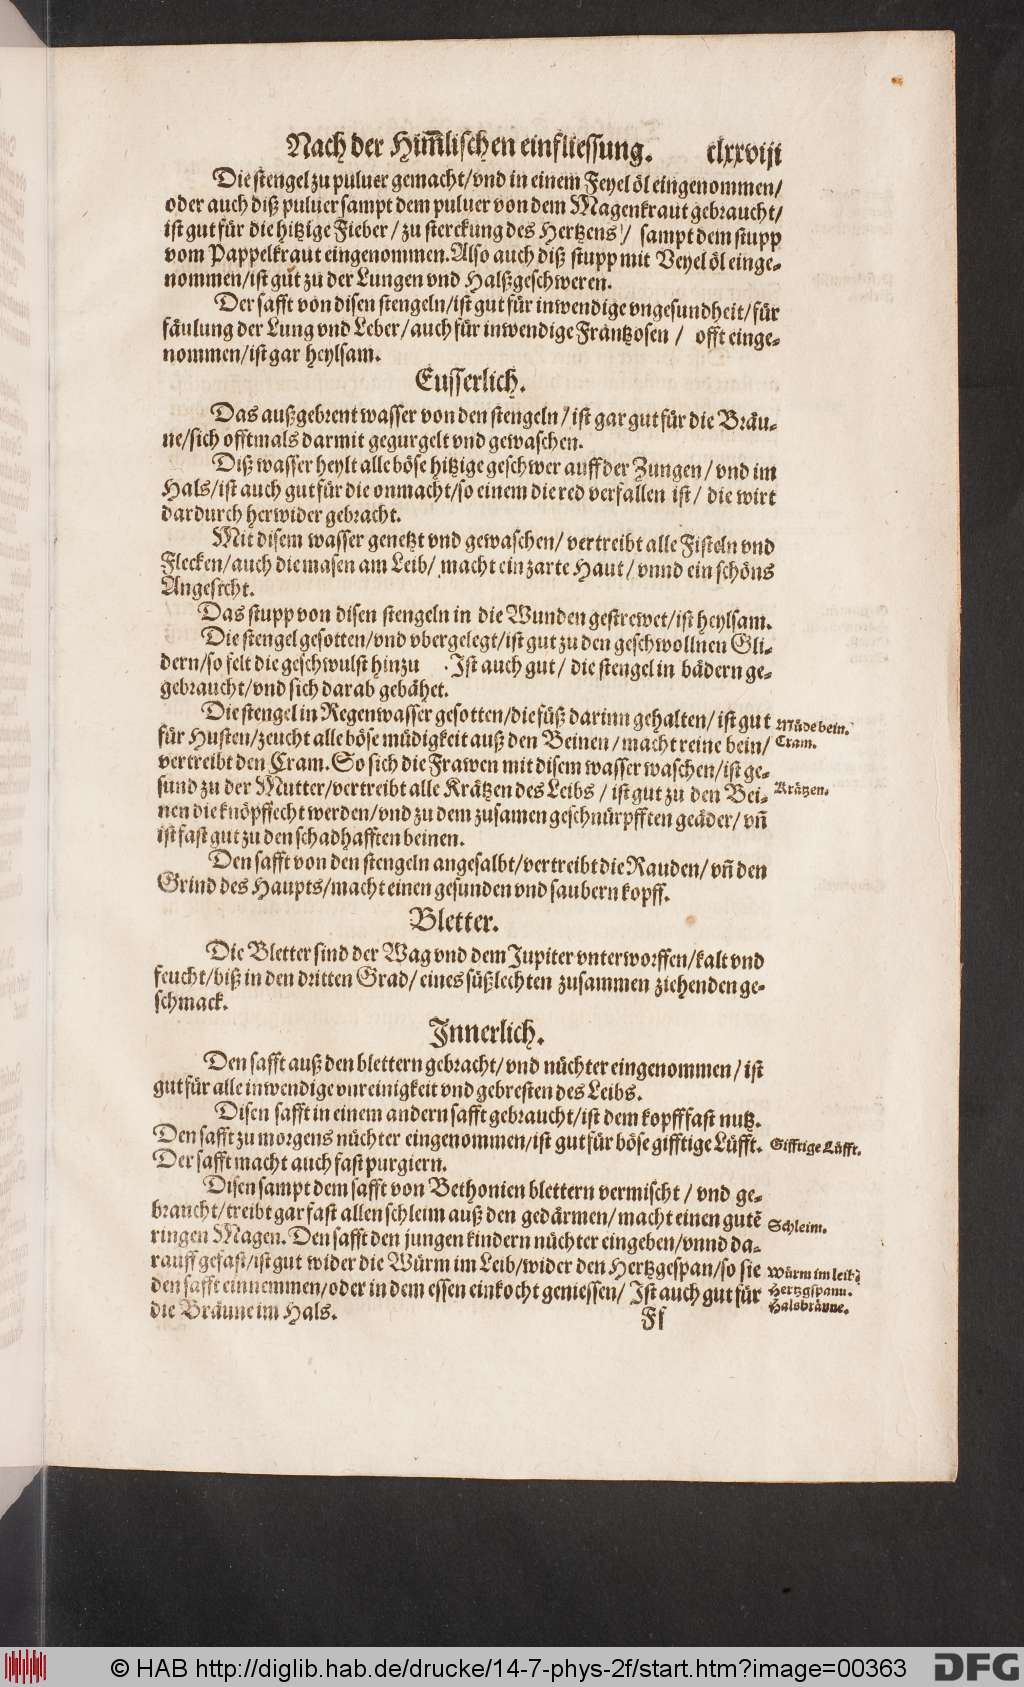 Nach der Him̃lischen einfliessung. clxxviij
Die stengel zu puluer gemacht/vnd in einem Feyel öl eingenommen/
oder auch diß puluer sampt dem puluer von dem Magenkraut gebraucht/
ist gut für die hitzige Fieber / zu sterckung des Hertzens / sampt dem stupp
vom Pappelkraut eingenommen. Also auch diß stupp mit Veyel öl einge-
nommen/ist gut zu der Lungen vnd Halßgeschweren.
Der safft von disen stengeln/ist gut für inwendige vngesundheit/für
fäulung der Lung vnd Leber/auch für inwendige Frantzosen / offt einge-
nommen/ist gar heylsam.
Eusserlich.
Das außgebrent wasser von den stengeln/ist gar gut für die Bräu-
ne/sich offtmals darmit gegurgelt vnd gewaschen.
Diß wasser heylt alle böse hitzige geschwer auff der Zungen/vnd im
Hals/ist auch gut für die onmacht/so einem die red verfallen ist/ die wirt
dardurch herwider gebracht.
Mit disem wasser genetzt vnd gewaschen/vertreibt alle Fisteln vnd
Flecken/auch die masen am Leib/ macht ein zarte Haut/ vnnd ein schöns
Angesicht.
Das stupp von disen stengeln in die Wunden gestrewet/ist heylsam.
Die stengel gesotten/vnd vbergelegt/ist gut zu den geschwollnen Gli-
dern/so felt die geschwulst hinzu . Ist auch gut/ die stengel in bädern ge-
gebraucht/vnd sich darab gebähet.
Die stengel in Regenwasser gesotten/die füß darinn gehalten/ist gut Müde bein.
für Husten/zeucht alle böse müdigkeit auß den Beinen/macht reine bein/ Cram.
vertreibt den Cram. So sich die Frawen mit disem wasser waschen/ist ge-
sund zu der Mutter/vertreibt alle Krätzen des Leibs / ist gut zu den Bei- Krätzen.
nen die knöpffecht werden/vnd zu dem zusamen geschnürpfften geäder/ vñ
ist fast gut zu den schadhafften beinen.
Den safft von den stengeln angesalbt/vertreibt die Rauden/ vñ den
Grind des Haupts/macht einen gesunden vnd saubern kopff.
Bletter.
Die Bletter sind der Wag vnd dem Jupiter vnterworffen/kalt vnd
feucht/biß in den dritten Grad/ eines süßlechten zusammen ziehenden ge-
schmack.
Innerlich.
Den safft auß den blettern gebracht/vnd nüchter eingenommen/ist
gut für alle inwendige vnreinigkeit vnd gebresten des Leibs.
Disen safft in einem andern safft gebraucht/ist dem kopff fast nutz.
Den safft zu morgens nüchter eingenommen/ist gut für böse gifftige Lüfft. Gifftige Lüfft.
Der safft macht auch fast purgiern.
Disen sampt dem safft von Bethonien blettern vermischt / vnd ge-
braucht/treibt gar fast allen schleim auß den gedärmen/macht einen gutē Schleim.
ringen Magen. Den safft den jungen kindern nüchter eingeben/vnnd da-
rauff gefast/ist gut wider die Würm im Leib/wider den Hertzgespan/so sie Würm im leib
den safft einnemmen/oder in dem essen einkocht geniessen/ Ist auch gut für Hertzgspann.
die Bräune im Hals. Halsbräune.
Ff
© HAB http://diglib.hab.de/drucke/14-7-phys-2f/start.htm?image=00363
DFG